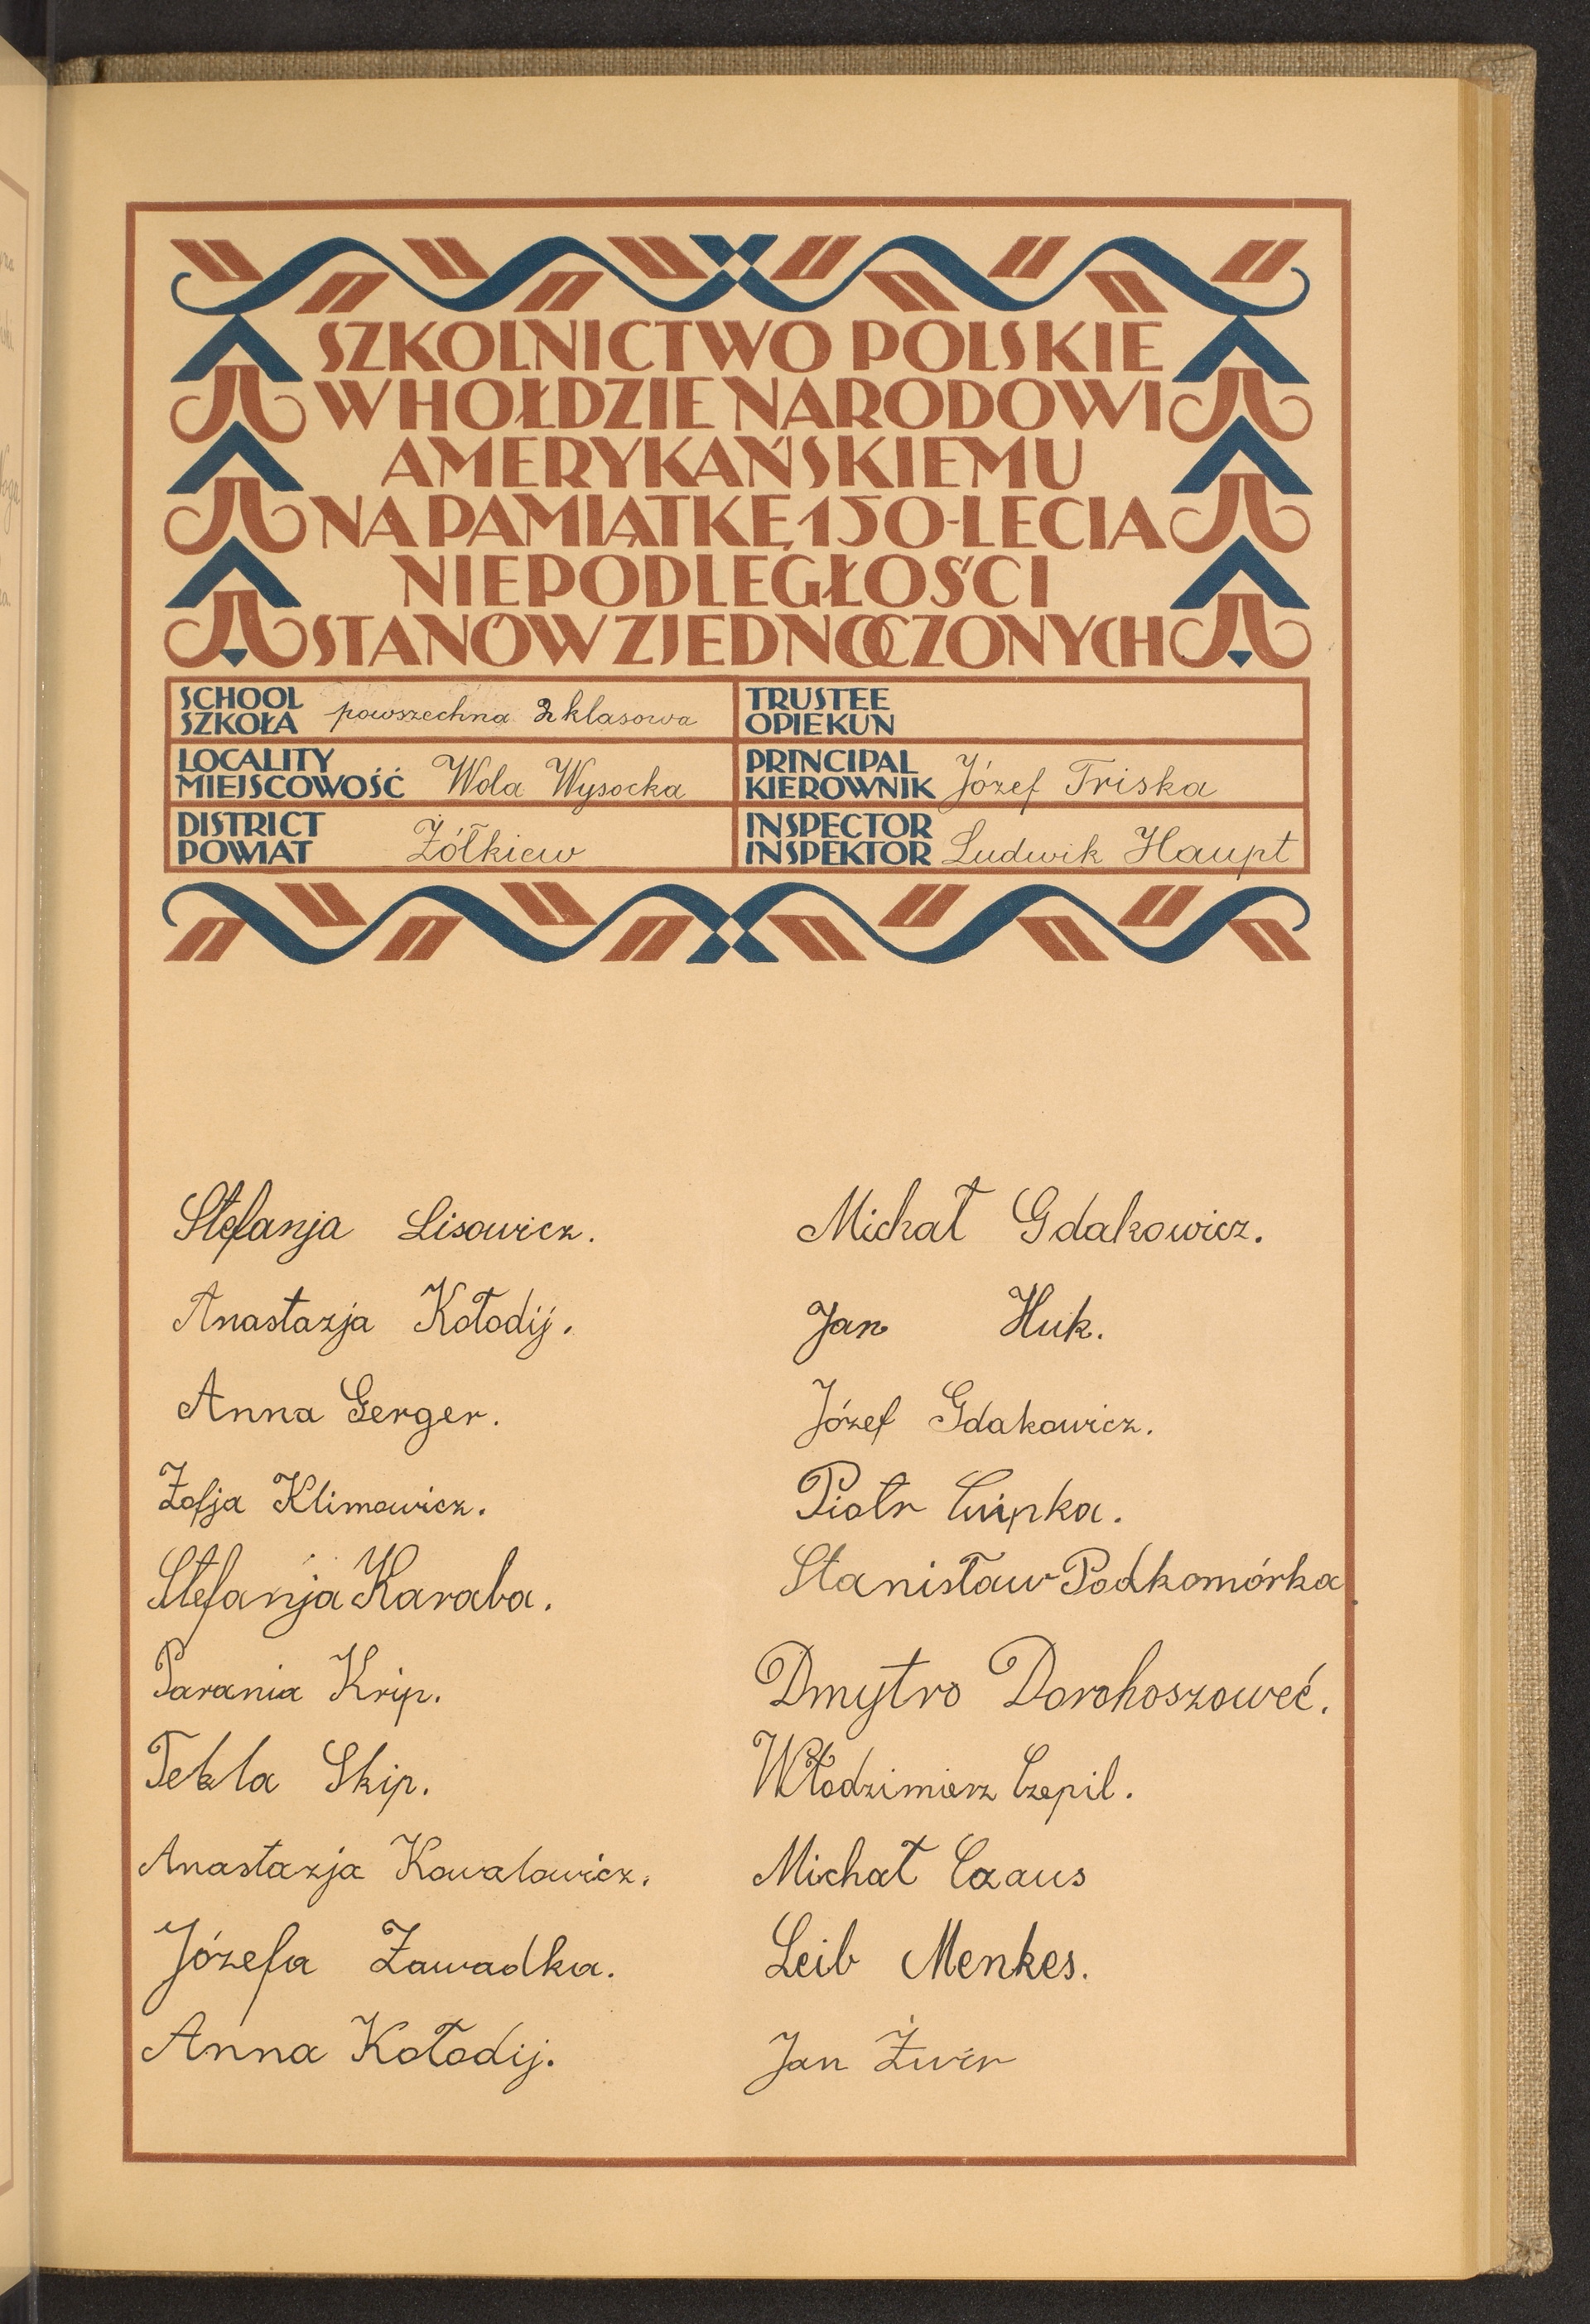 SZKOLNICTWO POLSKIE
W HOŁDZIE NARODOWI
AMERYKAŃSKIEMU
NA PAMIĄTKĘ 150-LECIA
NIEPODLEGŁOŚCI
STANÓW ZJEDNOCZONYCH
SCHOOL
SZKOŁA powszechna 2 klasowa
TRUSTEE
OPIEKUN
LOCALITY
MIEJSCOWOŚĆ Wola Wysocka
PRINCIPAL
KIEROWNIK Józef Triska
DISTRICT
POWIAT Żółkiew
INSPECTOR
INSPEKTOR Ludwik Haupt
Stefanja Lisowicz.
Anastazja Kołodij.
Anna Gerger.
Zofja Klimowicz.
Stefanja Karaba.
Parania Krip.
Tekla Skip.
Anastazja Kowalowicz.
Józefa Zawadka.
Anna Kołodij.
Michał Gdakowicz.
Jan Huk.
Józef Gdakowicz.
Piotr
Stanisław Podkomórka.
Dmytro Dorohoszoweć.
Włodzimierz Czepil.
Michał Czaus
Leib Menkes.
Jan Żwir